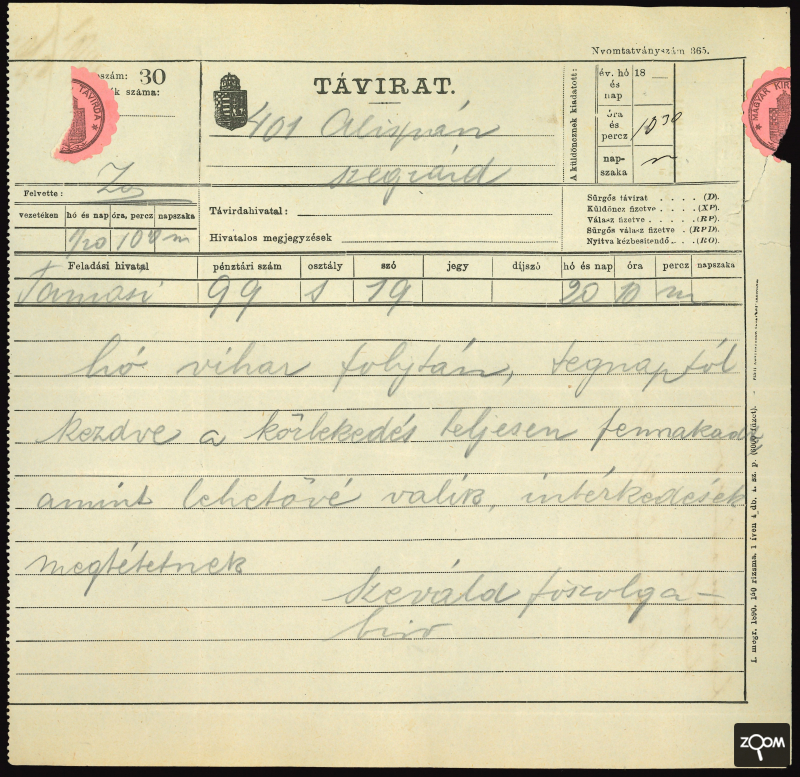 Nyomtatványszám 365.
szám: 30
k száma:
TÁVIRAT.
401 Alispán
Szegzárd
A küldöncznek kiadatott:
év. hó és nap 18
óra és percz 10 30
napszaka
MAGYAR KIR
TÁVIRDA
Felvette:
vezetéken hó és nap óra, percz napszaka
1/20 10 m
Távirdahivatal:
Hivatalos megjegyzések
Sürgős távirat . . . . (D).
Küldöncz fizetve . . . . (XP).
Válasz fizetve . . . . (RP).
Sürgős válasz fizetve . (RPD).
Nyitva kézbesitendő . . (RO).
Feladási hivatal pénztári szám osztály szó jegy díjszó hó és nap óra percz napszaka
Tamási 99 s 19 20 10 m
hó vihar folytán, tegnaptól
kezdve a közlekedés teljesen fennakadt
amint lehetővé válik, intézkedések
megtétetnek
Szeváld főszolga-
biró
L. megr. 1890. 190 rizsma. 1 íven 4 db. 4. sz. p.
ZOOM